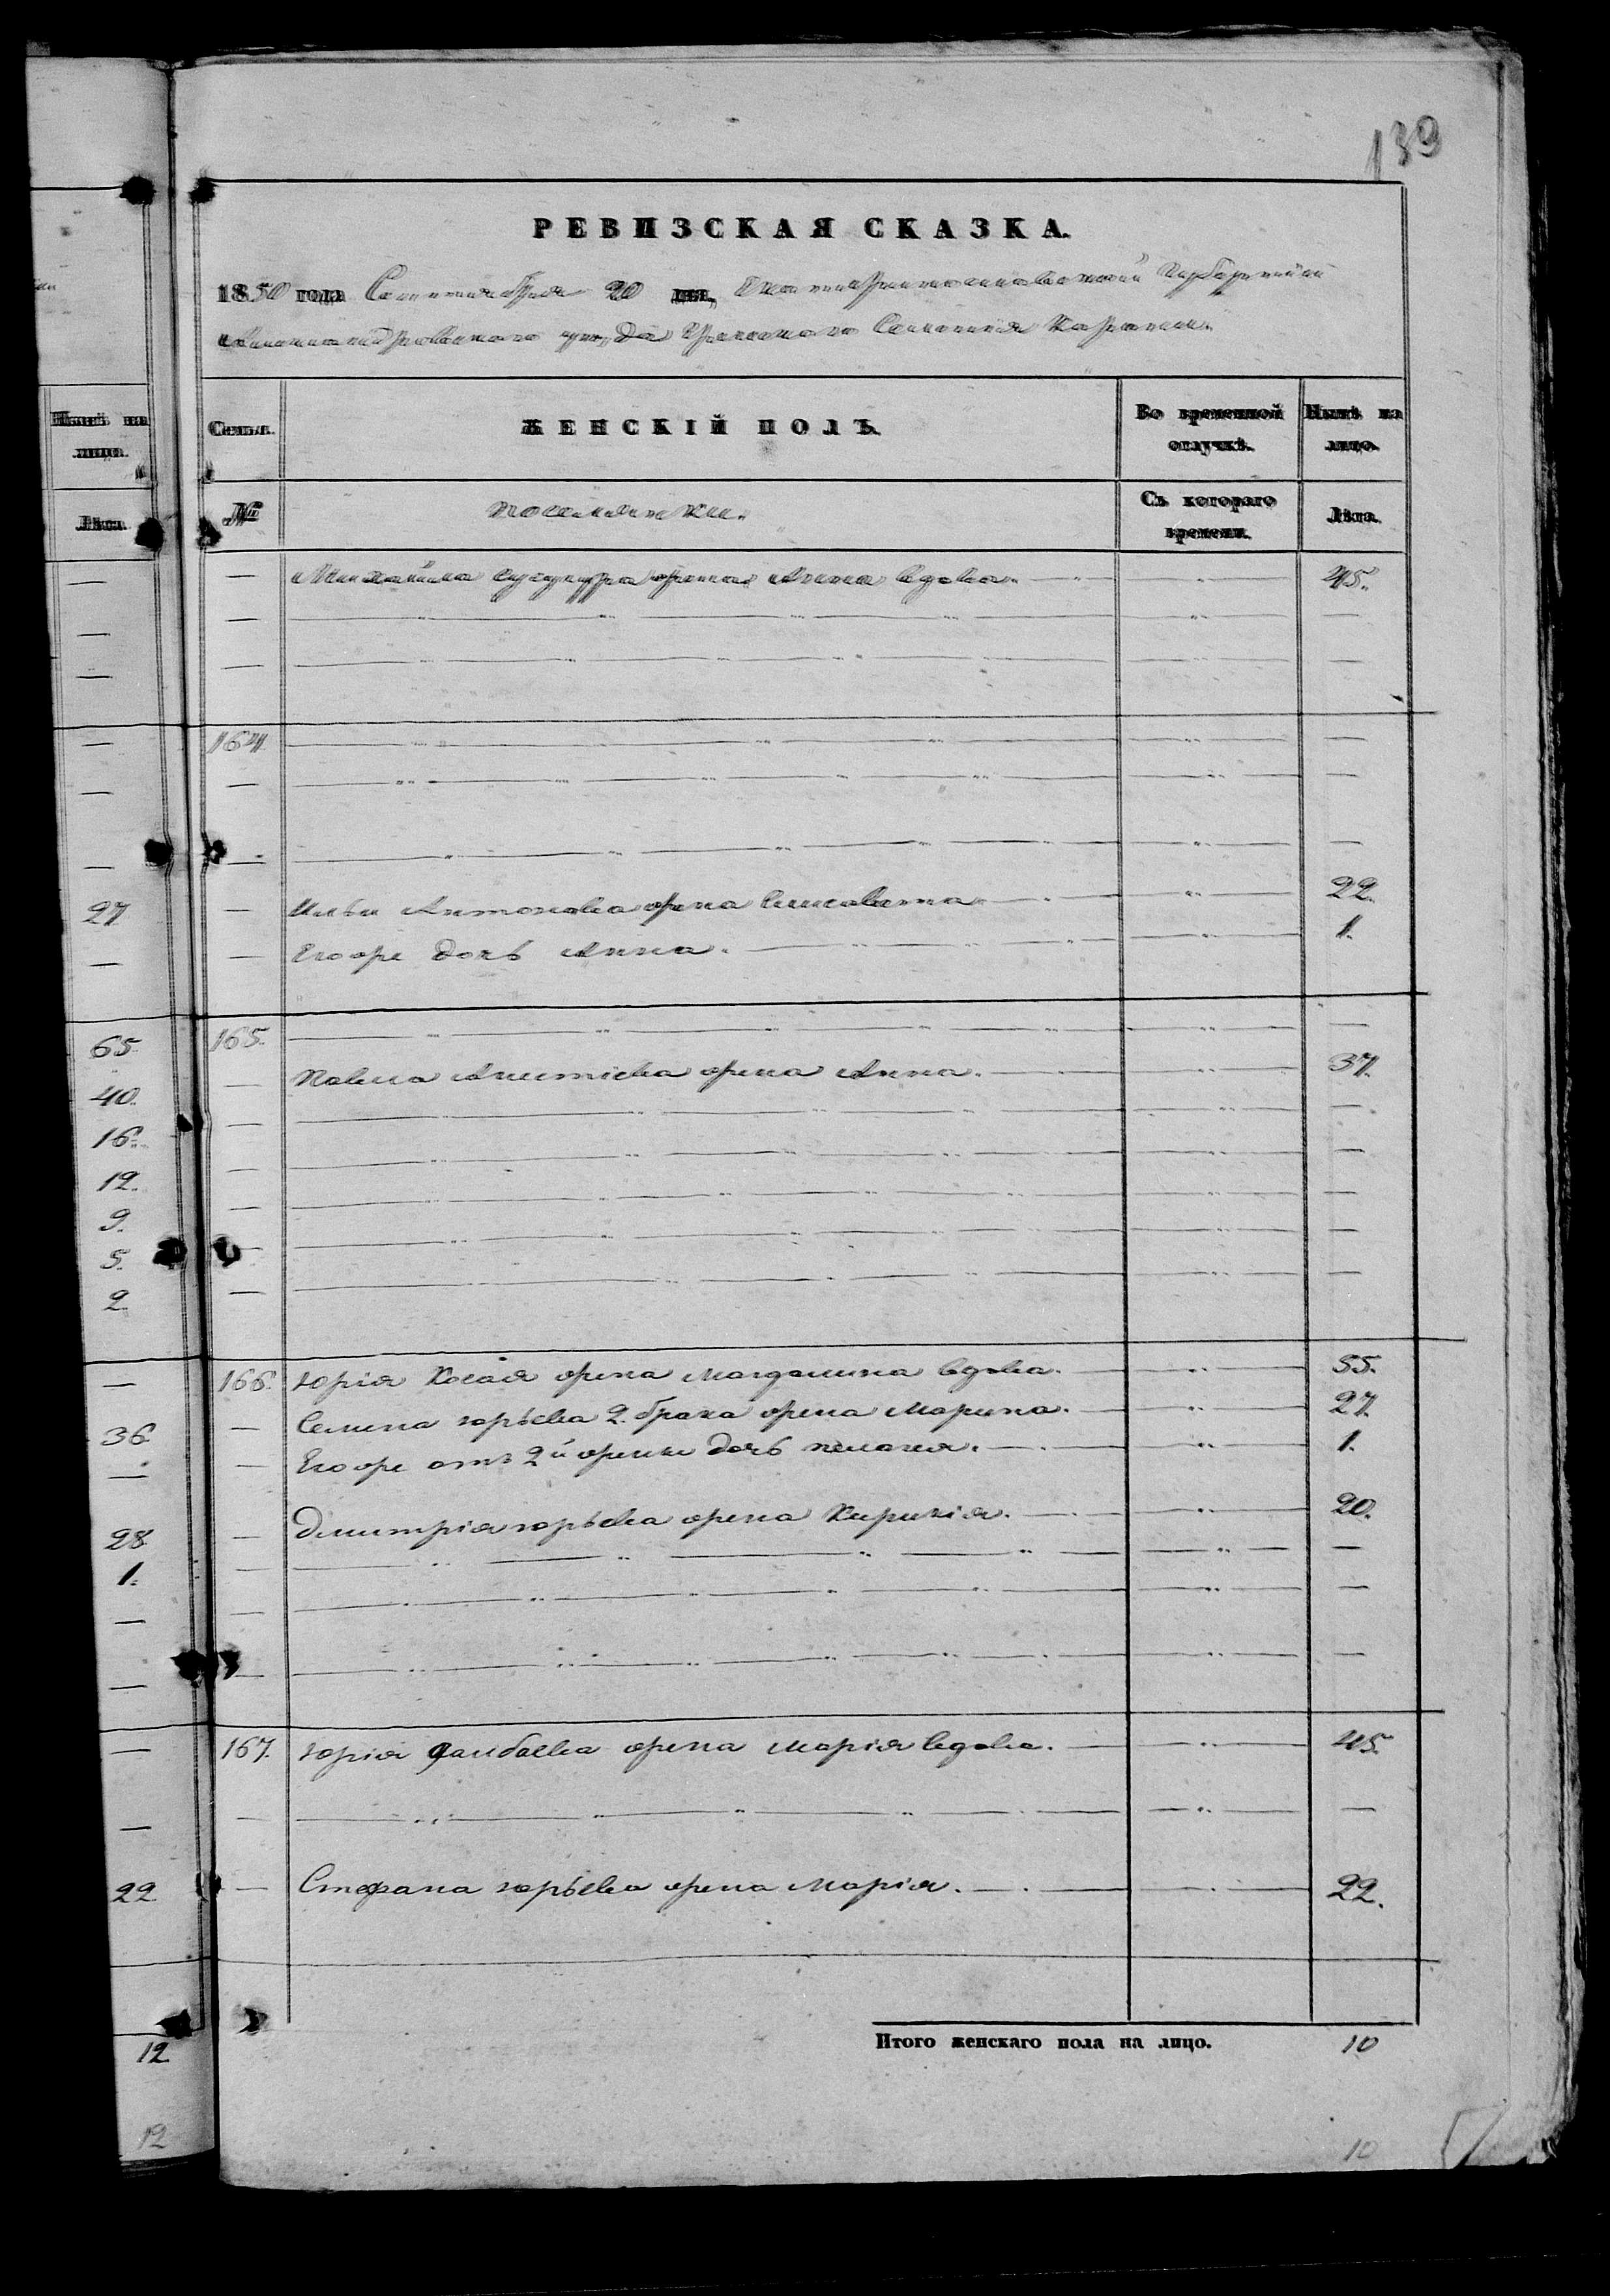 139
РЕВИЗСКАЯ СКАЗКА.
1850 года Сентября 20 дня, Екатеринославской Губерніи
Александровскаго уѣзда Греческаго Селенія Карань.
Нынѣ на лицо.
Лѣта.
Семья. ЖЕНСКІЙ ПОЛЪ. Во временной отлучкѣ. Нынѣ на лицо.
№ Съ котораго времени. Лѣта.
— Михайла жена Анна вдова. — 45.
164.
27 — Ильи Антонова жена Елисавета — 22.
— Его же дочь Анна. — 1.
65. 165.
40. — Павла жена Анна. — 37.
16.
12.
9.
5.
2.
— 166. Юрія жена Магдалина вдова. — 55.
36. — Семена Юрьева 2. брака жена Марина. — 27.
— Его же отъ 2й жены дочь Пелагея. — 1.
28. — Дмитрія Юрьева жена Кирикія. — 20.
1.
— 167. Юрія жена Марія вдова. — 45.
22 — Стефана Юрьева жена Марія. — 22.
12 Итого женскаго пола на лицо. 10
12 10